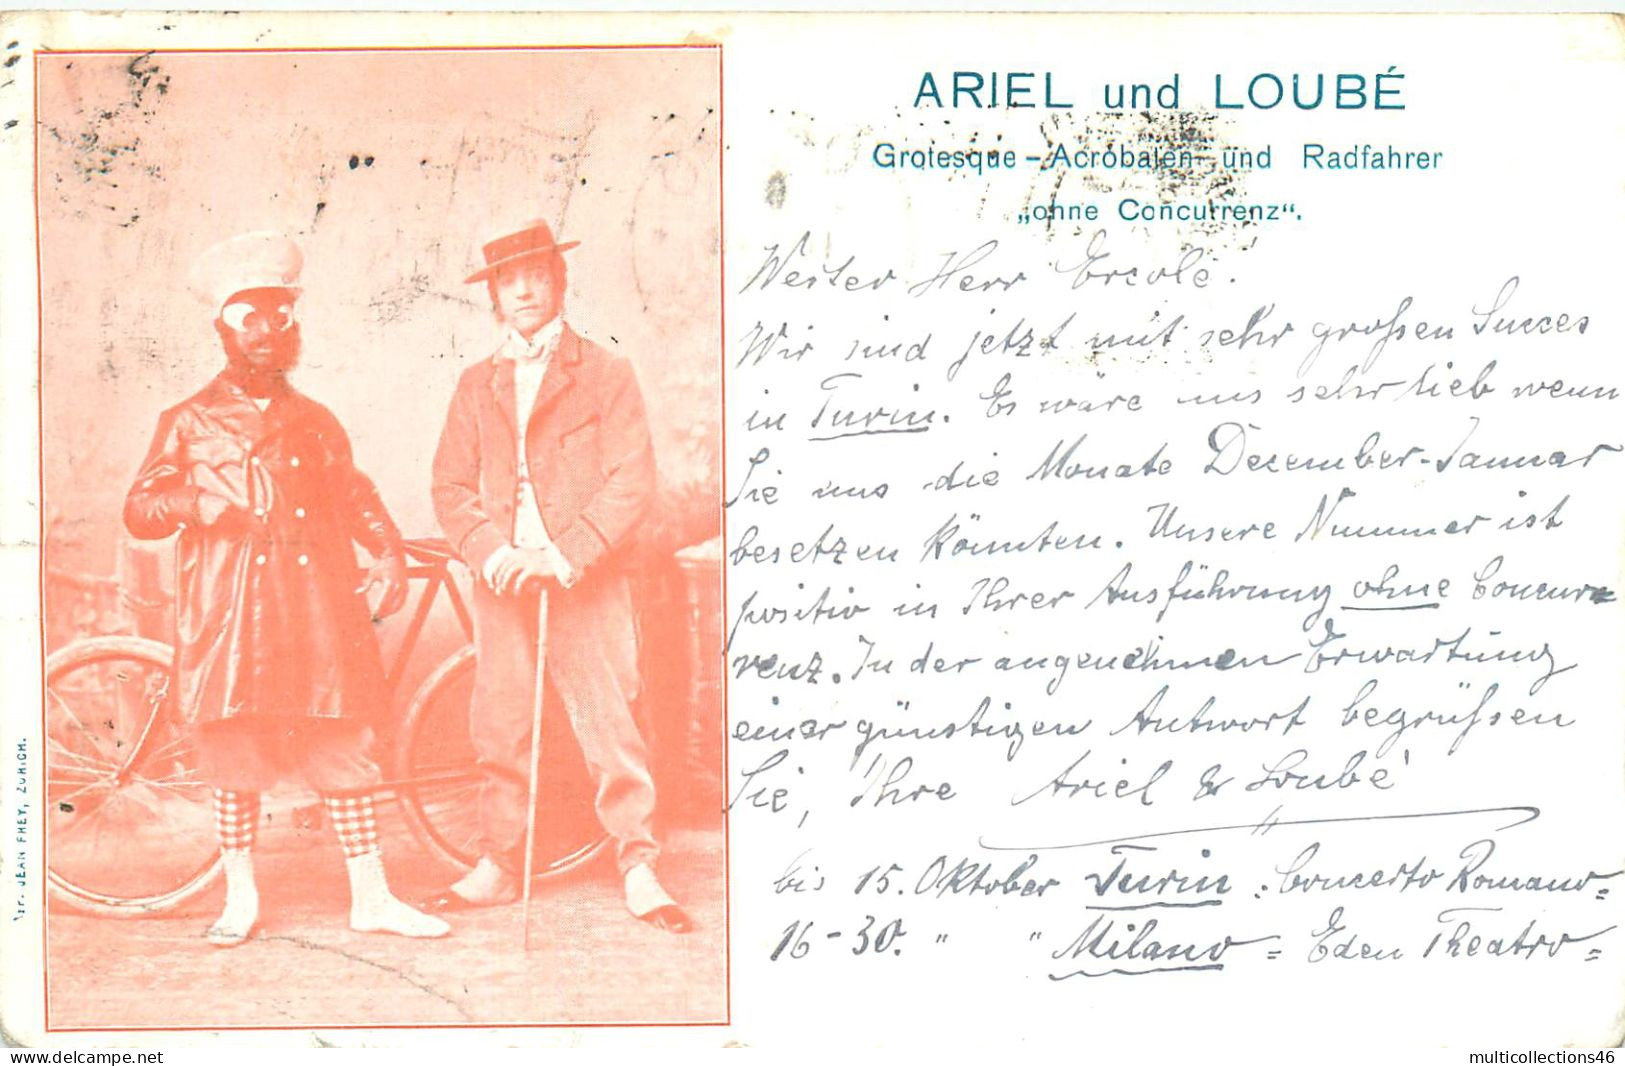 ARIEL und LOUBÉ
Grotesque - Acrobaten und Radfahrer
„ohne Concurrenz“.
Werter Herr Ercole.
Wir sind jetzt mit sehr großen Succes
in Turin. Es wäre uns sehr lieb wenn
Sie uns die Monate December-Januar
besetzen könnten. Unsere Nummer ist
positiv in Ihrer Ausführung ohne Concur=
renz. In der angenehmen Erwartung
einer günstigen Antwort begrüßen
Sie, Ihre Ariel & Loubé
bis 15. Oktober Turin. Concerto Romano=
16-30. " " Milano = Eden Theatro=
JEAN FREY, ZÜRICH.
www.delcampe.net
multicollections46